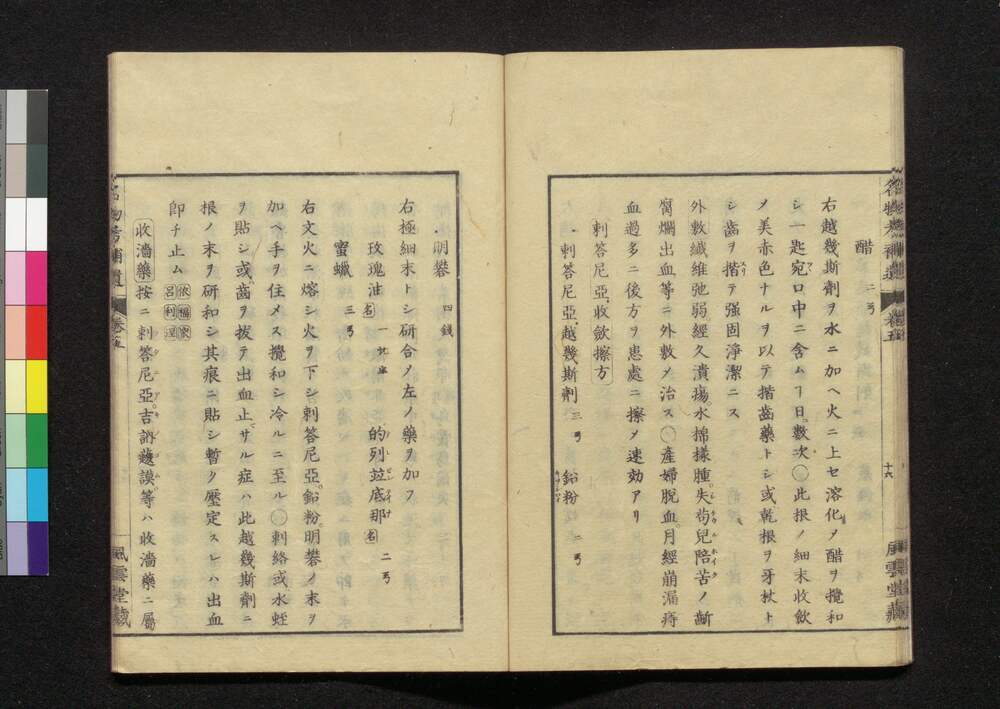 醋 二弓
右越幾斯劑ヲ水ニ加ヘ火ニ上セ溶化〆醋ヲ攪和
シ一匙宛口中ニ含ムヿ日數次〇此根ノ細末收飲
〆美赤色ナルヲ以テ揩齒藥トシ或乾根ヲ牙杖ト
シ齒ヲ揩テ強固淨潔ニス
外數纖維弛弱經久潰瘍水棉樣腫失苟兒陪苦ノ齗
腐爛出血等ニ外敷〆治ス〇產婦脫血月經崩漏痔
血過多ニ後方ヲ患處ニ擦〆速効アリ
剌答尼亞收歛擦方
剌答尼亞越幾斯劑 三弓 鉛粉 二弓
名物考補遺 卷五 十六 風雲堂藏
明礬 四錢
右極細末トシ研合ノ左ノ藥ヲ加フ
玫瑰油 名 一 的列並底那 名 二弓
蜜蠟 三弓
右文火ニ熔シ火ヲ下シ剌答尼亞鉛粉明礬ノ末ヲ
加ヘ手ヲ住メス攪和シ冷ルニ至ル〇刺絡或水蛭
ヲ貼シ或齒ヲ拔テ出血止サル症ハ此越幾斯劑ニ
根ノ末ヲ研和シ其痕ニ貼シ暫ク壓定スレハ出血
即チ止ム 依福家 呂利涅
收濇藥 按ニ剌答尼亞吉訥護謨等ハ收濇藥ニ屬
名物考補遺 卷五 風雲堂藏